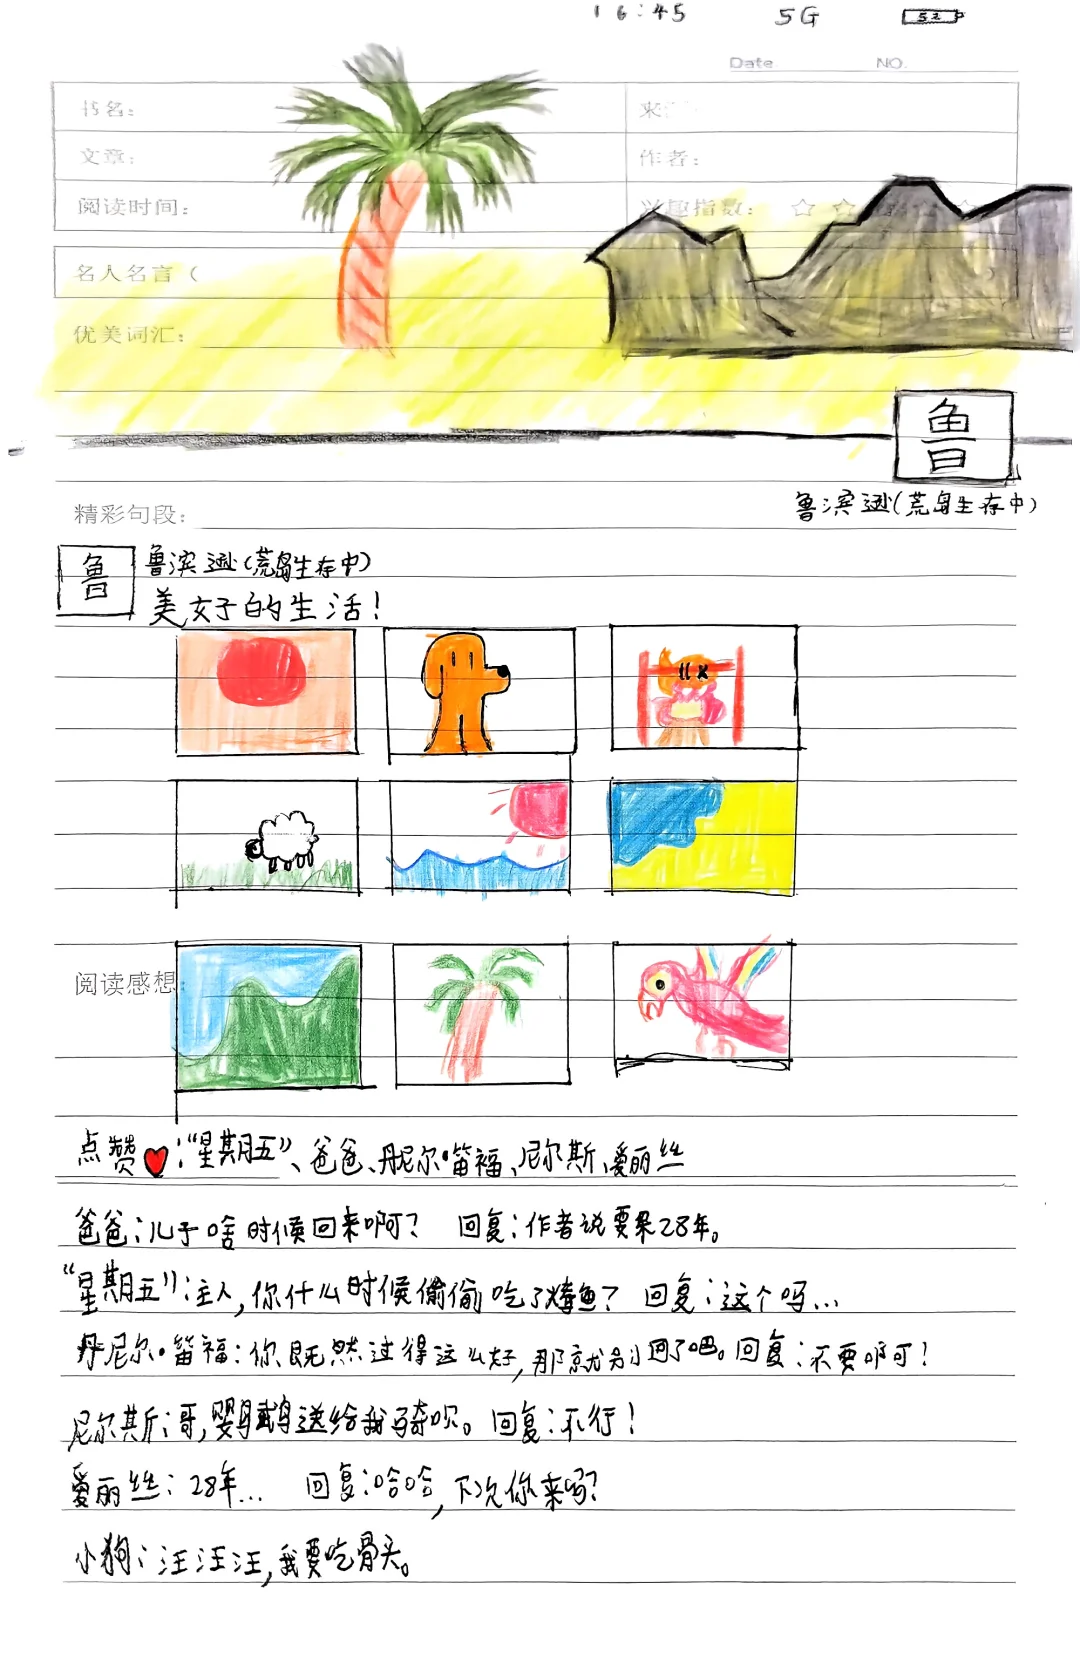 16:45 5G 52
Date NO.
书名：
来
文章：
作者：
阅读时间：
兴趣指数：☆☆☆☆☆
名人名言（ ）
优美词汇：
鲁
鲁滨逊(荒岛生存中)
精彩句段：
鲁
鲁滨逊(荒岛生存中)
美好的生活！
阅读感想
点赞❤："星期五"、爸爸、丹尼尔·笛福、尼尔斯、爱丽丝
爸爸：儿子啥时候回来啊？ 回复：作者说要呆28年。
"星期五"：主人，你什么时候偷偷吃了烤鱼？ 回复：这个吗...
丹尼尔·笛福：你既然过得这么好，那就别回了吧。回复：不要啊！
尼尔斯：哥，鹦鹉送给我骑呗。回复：不行！
爱丽丝：28年... 回复：哈哈，下次你来吗？
小狗：汪汪汪，我要吃骨头。